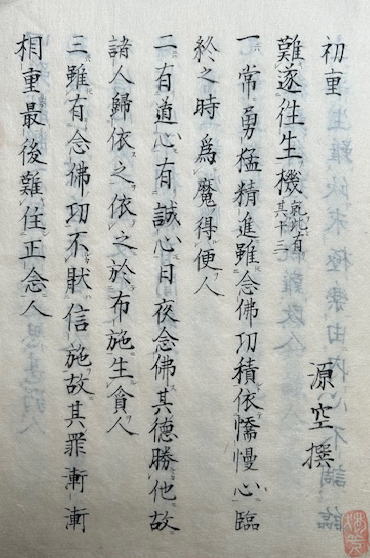 初重 源空撰
難遂往生機 就此有其下三
一常勇猛精進雖念佛功積依憍慢心臨
終之時為魔得便人
二有道心有誠心日夜念佛其德勝他故
諸人歸依之依之於布施生貪人
三雖有念佛功不猒信施故其罪漸漸
相重最後難住正念人